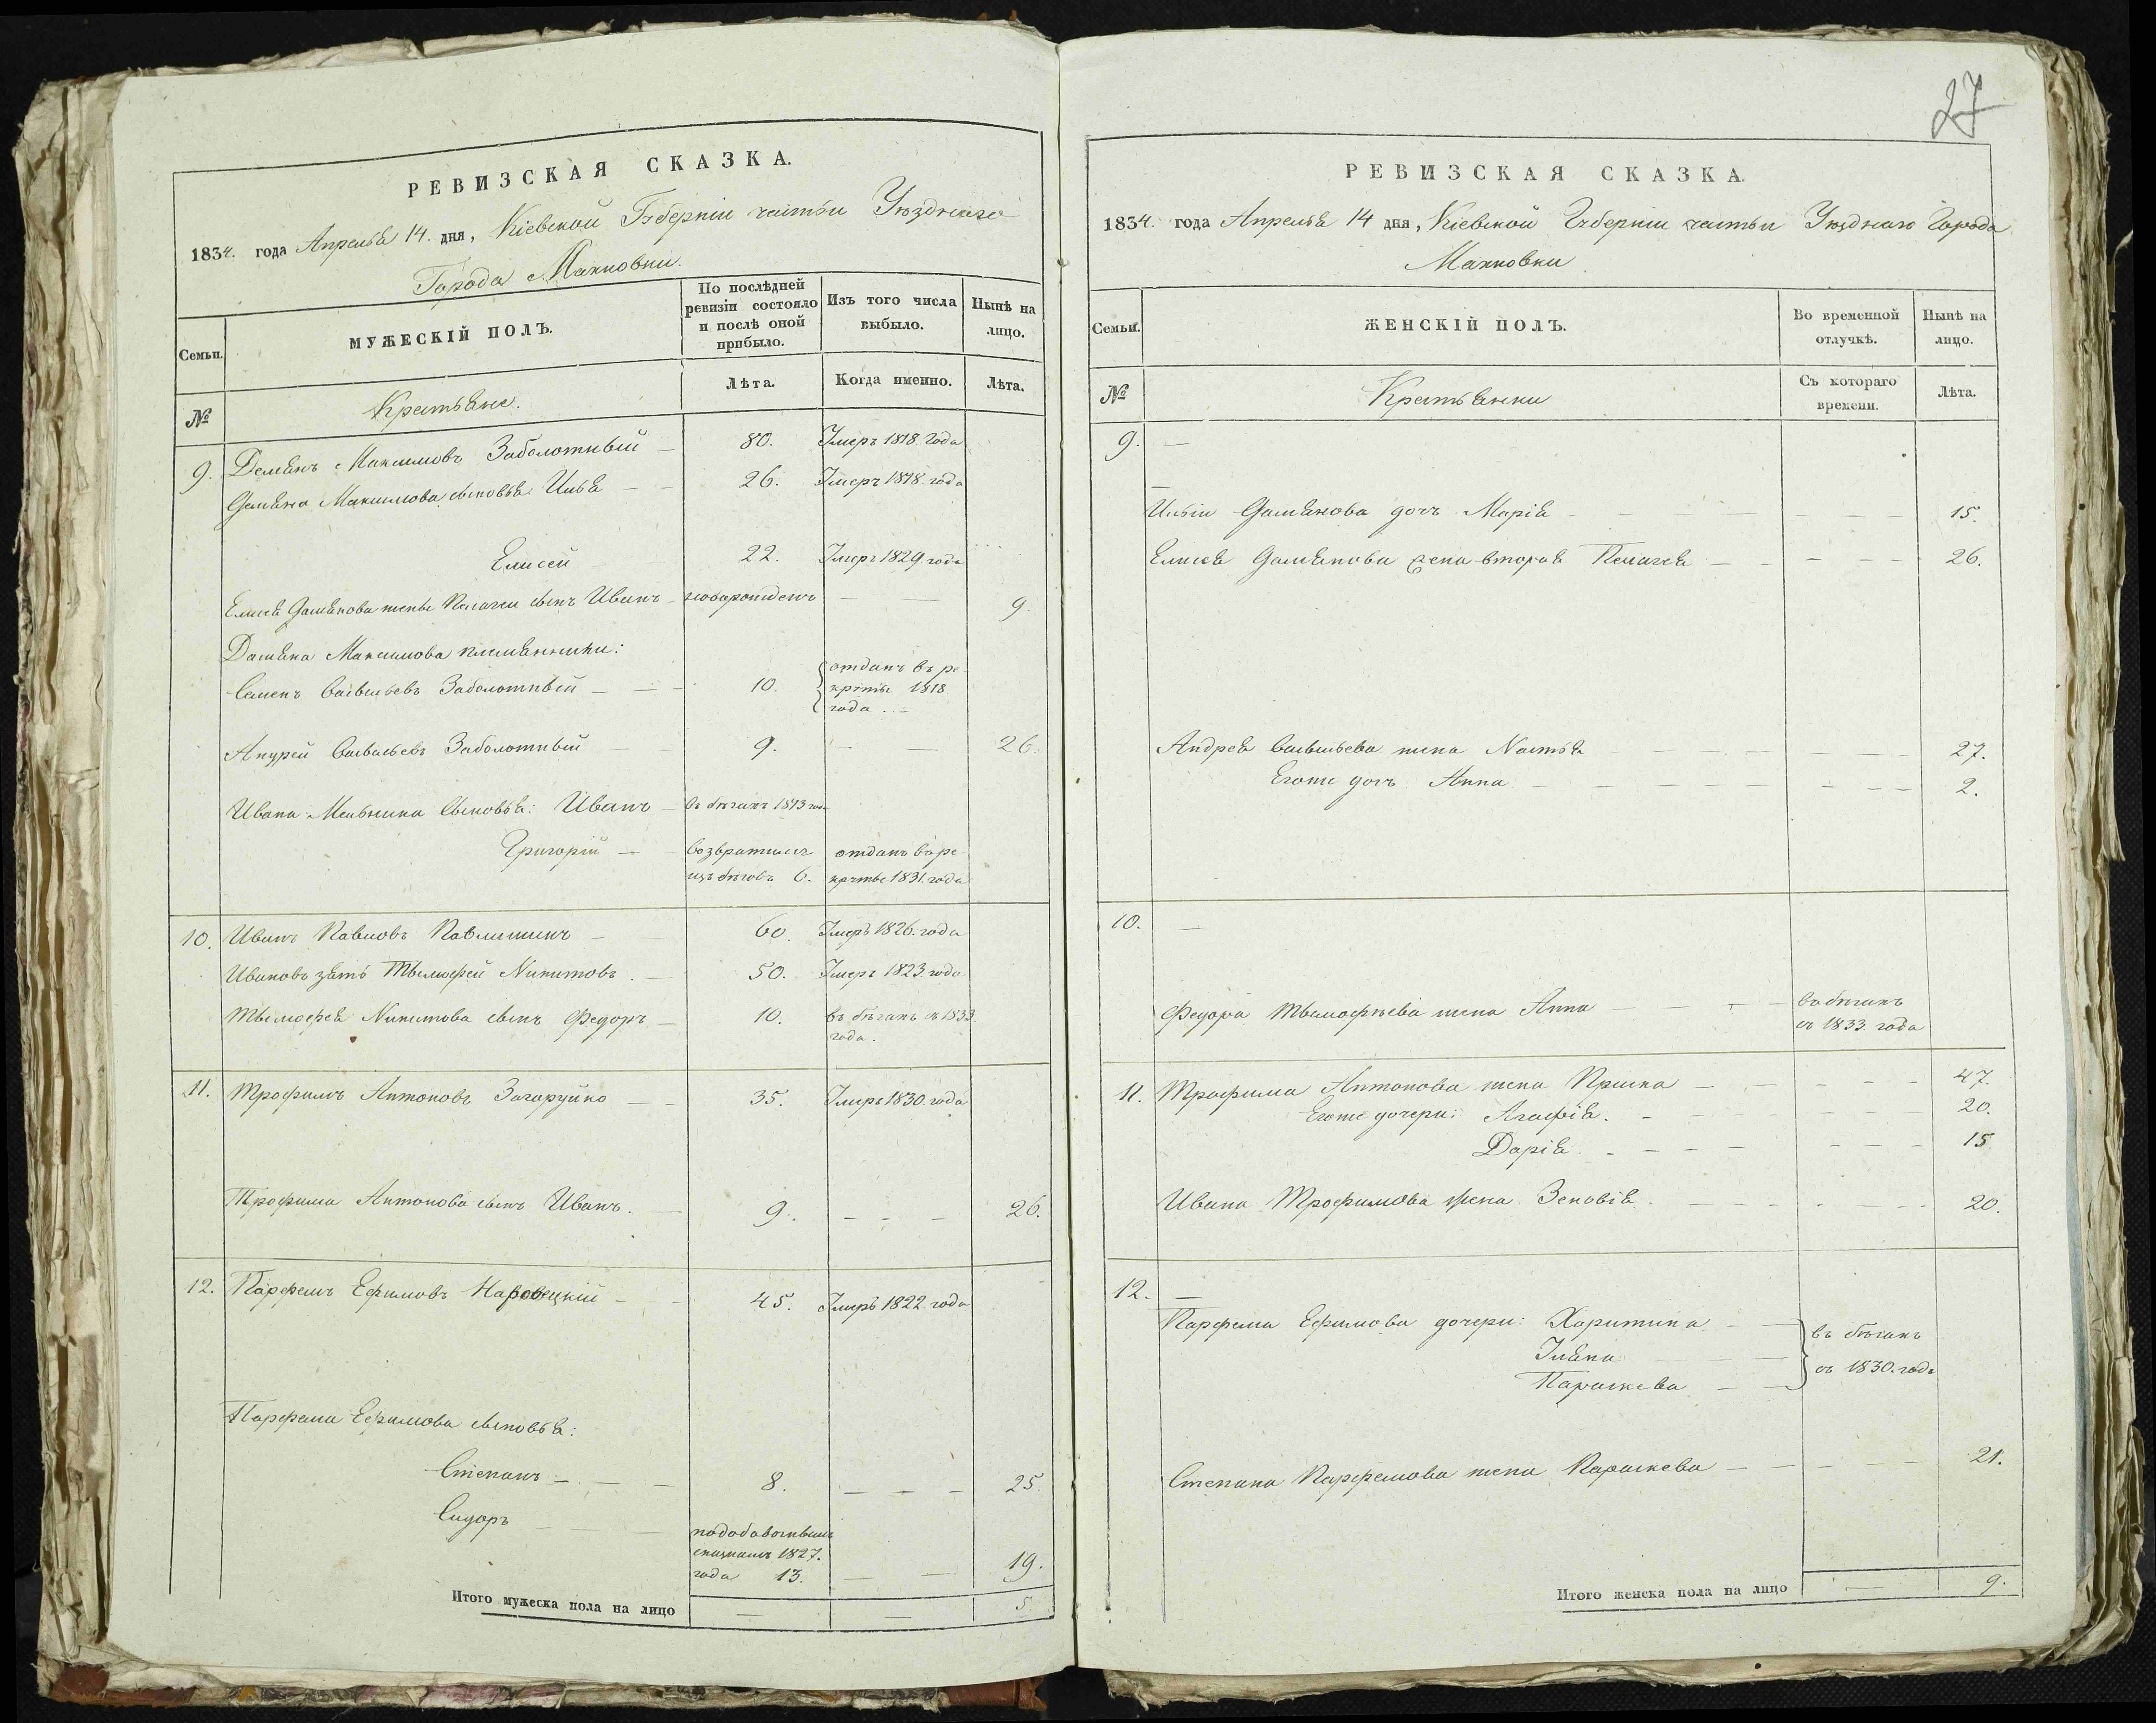 РЕВИЗСКАЯ СКАЗКА.
1834. года Апреля 14. дня, Кіевской Губерніи части Уѣзднаго
Города Махновки.
Семьи.
МУЖЕСКІЙ ПОЛЪ.
По послѣдней ревизіи состояло и послѣ оной прибыло.
Изъ того числа выбыло.
Нынѣ на лицо.
№
Крестьяне.
Лѣта.
Когда именно.
Лѣта.
9. Демянъ Максимовъ Заболотный — 80. Умеръ 1818. года
Демяна Максимова сыновья: Илья — — 26. Умеръ 1818. года
Елисей 22. Умеръ 1829 года
Елисея Демянова жены Пелагеи сынъ Иванъ — новорожденъ — — 9.
Дамяна Максимова племянники:
Семенъ Васильевъ Заболотный — — 10. отданъ въ ре
круты 1818
года. —
Андрей Васильевъ Заболотный — — 9. — — 26.
Ивана Мельника сыновья: Иванъ — въ бѣгахъ 1813 года
Григорій — — возвратился отданъ въ ре
изъ бѣговъ 6. круты 1831. года
10. Иванъ Павловъ Павлишинъ — 60. Умеръ 1826. года
Ивановъ зять Тымофей Никитовъ. — 50. Умеръ 1823. года
Тымофея Никитова сынъ Федоръ — 10. въ бѣгахъ съ 1833.
года.
11. Трофимъ Антоновъ Загоруйко — — 35. Умеръ 1830. года
Трофима Антонова сынъ Иванъ. — 9. — — — 26.
12. Парфемъ Ефимовъ — — 45. Умеръ 1822. года
Парфема Ефимова сыновья:
Степанъ — — — 8. — — — 25.
Сидоръ — — —
1827.
года 13. — — 19.
Итого мужеска пола на лицо — — 5.
27
РЕВИЗСКАЯ СКАЗКА.
1834. года Апреля 14 дня, Кіевской Губерніи части Уѣзднаго Города
Махновки
Семьи.
ЖЕНСКІЙ ПОЛЪ.
Во временной отлучкѣ.
Нынѣ на лицо.
№
Крестьянки
Съ котораго времени.
Лѣта.
9. —
—
Ильи Демянова дочь Марія — — — — — 15.
Елисея Демянова жена вторая Пелагея — — — — 26.
Андрея Васильева жена Настя — — — — — — 27.
Егоже дочь Анна — — — — — — — — 2.
10. —
Федора Тымофѣева жена Анна — — — — въ бѣгахъ
съ 1833. года
11. Трофима Антонова жена Приска — — — — — 47.
Егоже дочери: Агафія. — — — — — — 20.
Дарія. — — — — — — — 15.
Ивана Трофимова жена Зеновія. — — — — — — 20.
12. —
Парфема Ефимова дочери: Харитина — — въ бѣгахъ
Уляна — — съ 1830. года
Параскева — —
Степана Парфемова жена Параскева — — — — 21.
Итого женска пола на лицо — 9.